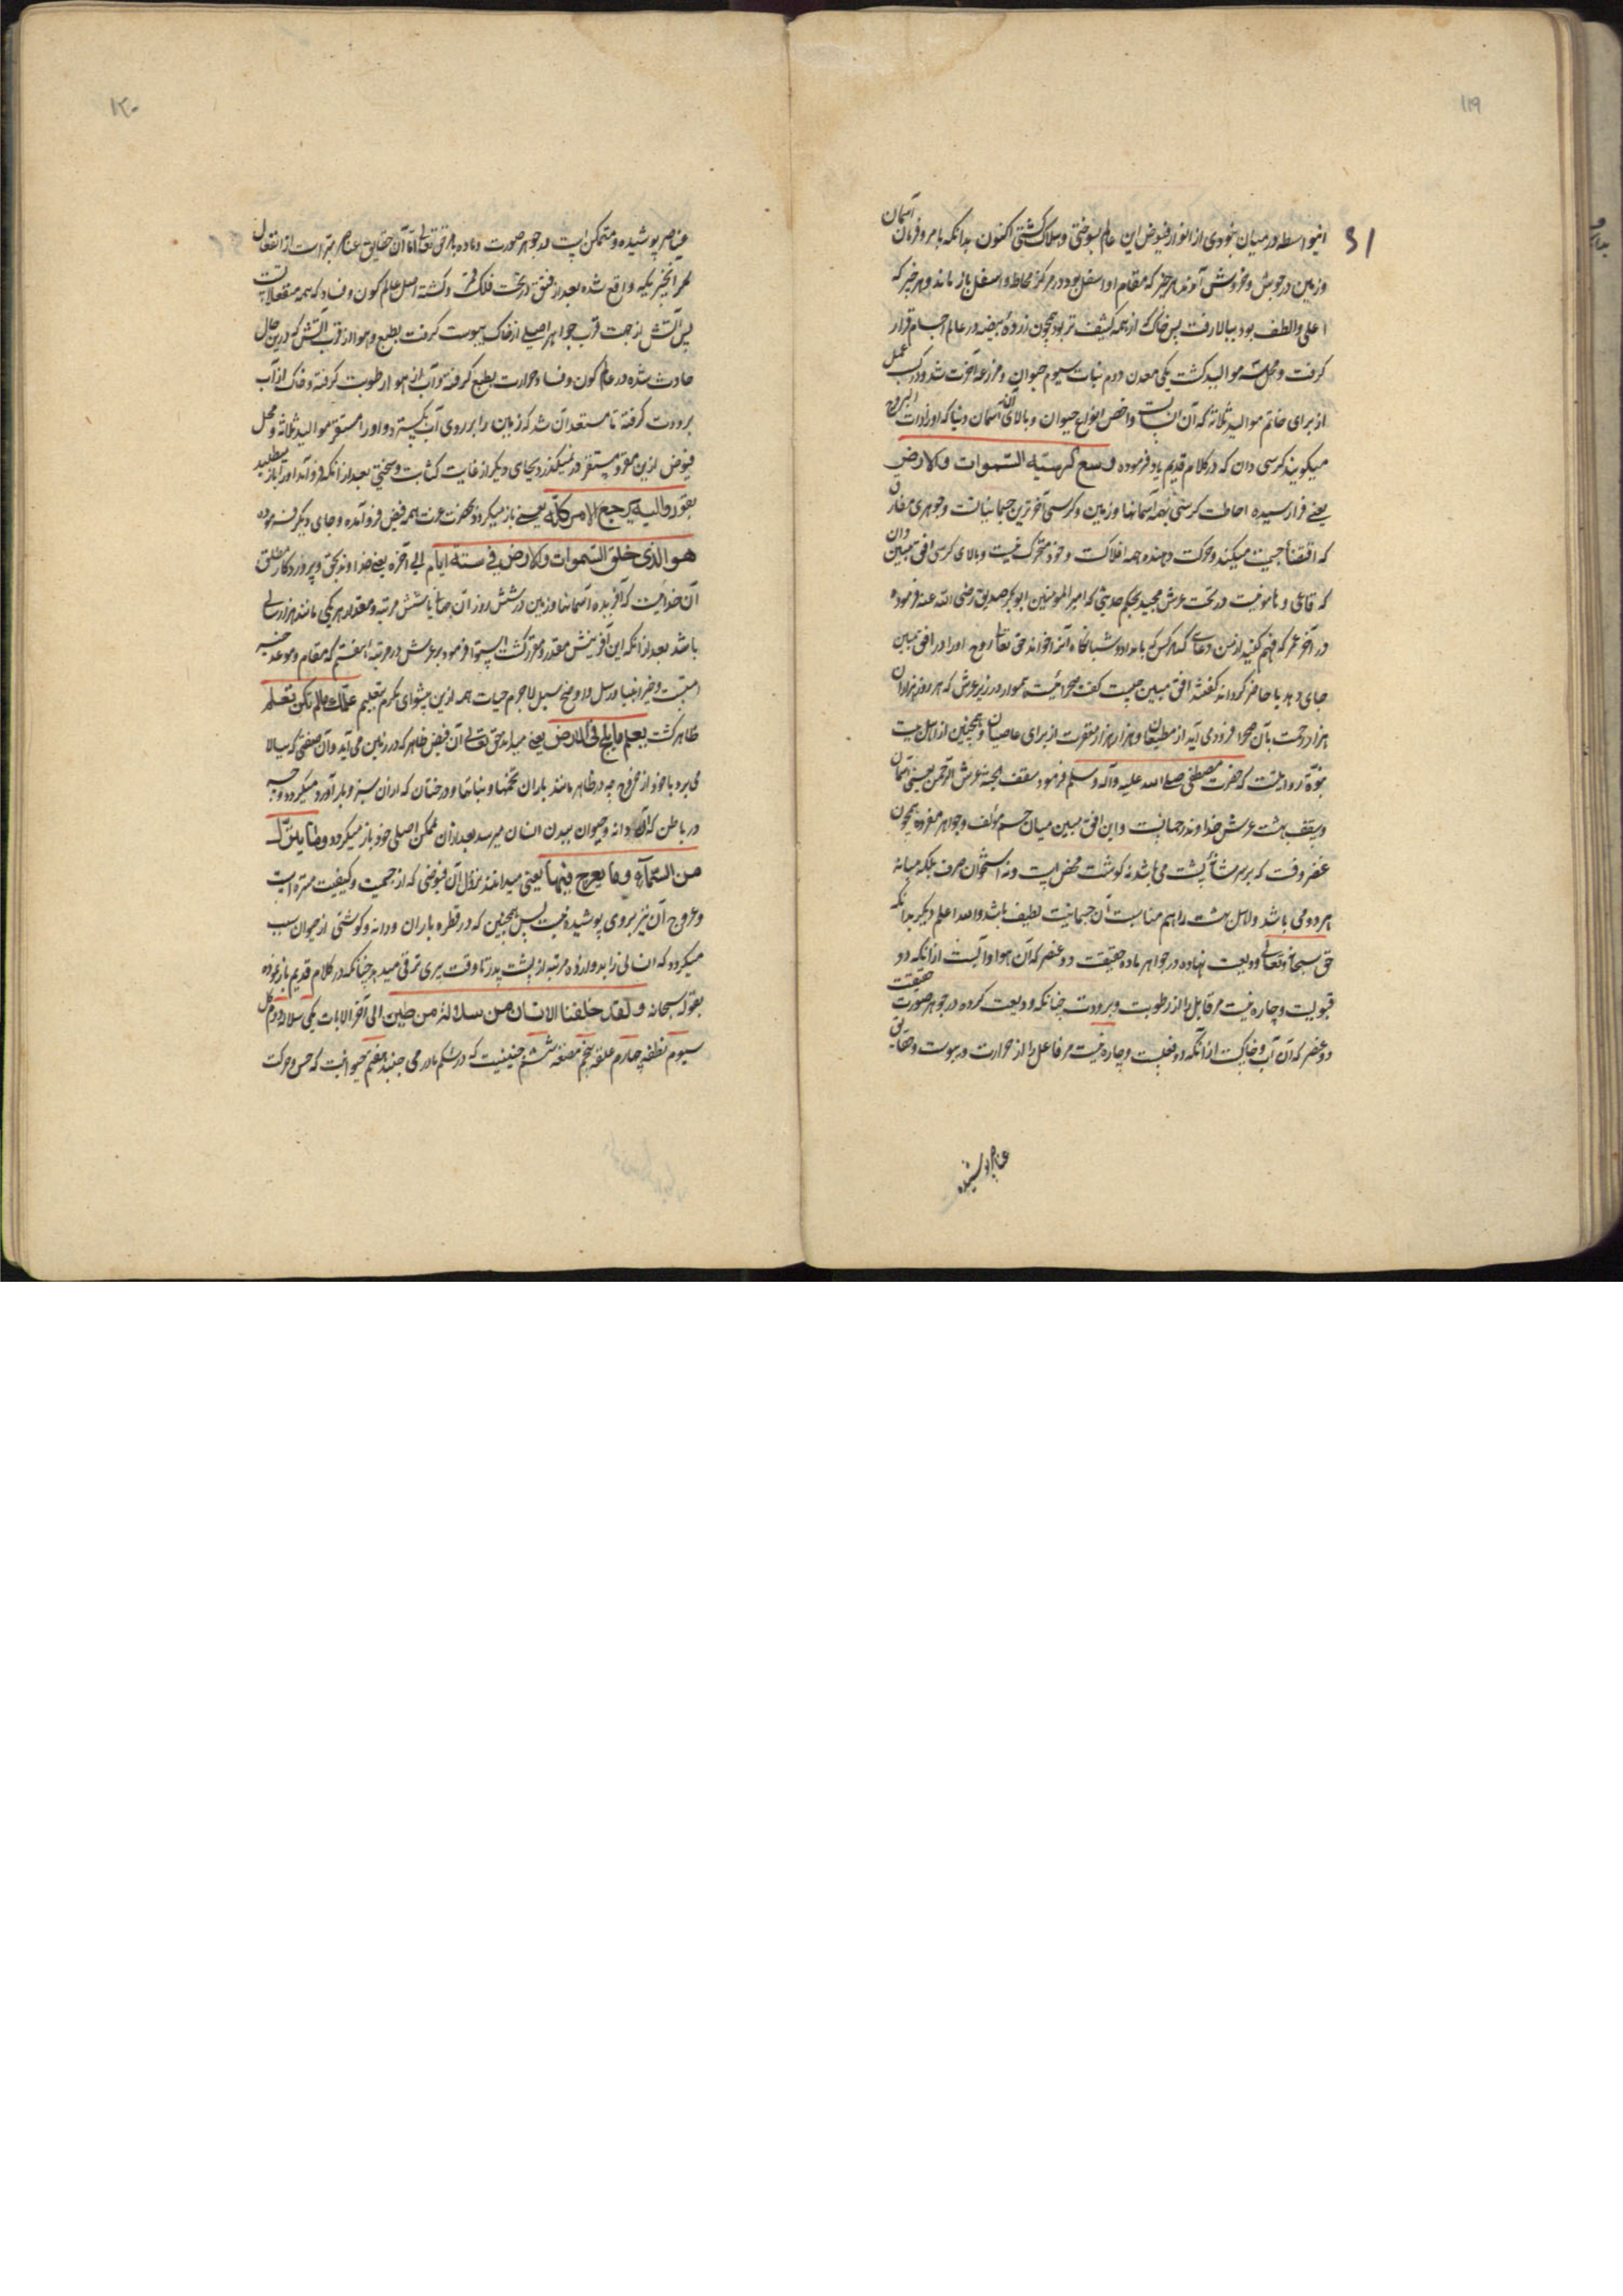 ۱۱۹
اینواسطه در میان نبودی از انوار فیوض این عالم بسوختی و هلاک گشتی اکنون بدانکه بامر و فرمان آسمان
و زمین در جوش و خروش آمدند هر چیز که مقام او اسفل بود در مرکز محاط و اسفل باز ماند و هر چیز که
اعلی و الطف بود ببالا رفت پس خاک که از همه کثیف تر بود همچون زردهٔ بیضه در عالم اجسام قرار
گرفت و محل سه موالید گشت یکی معدن دوم نبات سیوم حیوان و مزرعه آخرت شد و درک عمل
از برای خاتم موالید ثلاثه که آن انسانست و اخص انواع حیوان و بالای آسمان دنیا که او را ذات البروج
میگویند کرسی دان که در کلام قدیم یاد فرموده وسع کرسیه السموات والارض
یعنی فرا رسیده احاطت کرسی همه آسمانها و زمین و کرسی آخرترین جسمانیاتست و جوهری مفارق
که اقتضأ جسمیت میکند و حرکت دهنده همه افلاکست و خود متحرک نیست و بالای کرسی افق مبین دان
که قاعی و هامونیست در تحت عرش مجید بحکم حدیثی که امیر المؤمنین ابوبکر صدیق رضی الله عنه فرموده
در آخر عمر که فهم کنید از من دعایی که هر کس که بامداد و شبانگاه آنرا خواند حق تعالی روح او را در افق مبین
جای دهد یا حاضر گردانه گفتند افق مبین چیست گفت صحرائیست هموار در زیر عرش که هر روز هزاران
هزار رحمت بآن صحرا فرودمی آید از مطیعان و هزار هزار مغفرت از برای عاصیان و همچنین از اهل بیت
نبوة روایتست که حضرت مصطفی صلی الله علیه وآله وسلم فرمود سقف الجنه عرش الرحمن یعنی آسمان
و سقف بهشت عرش خداوند رحمانست و این افق مبین میان جسم مؤلف و جواهر مفرده همچون
غضروفست که بر سر شانه پشت می باشد نه گوشت محض است و نه استخوان صرف بلکه میانه
هر دو می باشد و لاس بهشت را هم مناسبت آن جسمانیت لطیف باشد والله اعلم دیگر بدانکه
حق سبحانه و تعالی ودیعت نهاده در جواهر ماده حقیقت دو عنصر که آن هوا و آبست از آنکه دو
قبولیست و چاره نیست مر قابل را از رطوبت و برودت چنانکه ودیعت کرده در جوهر صورت حقیقت
دو عنصر که آن آب و خاکست از آنکه دو فعلست و چاره نیست مر فاعل را از حرارت و یبوست و حقایق
عناصر پوشیده
۱۲۰
عناصر پوشیده و متمکن است در جوهر صورت و ماده بامر حق تعالی اما آن حقایق عناصر مبراست از انفعال
مگر آنچه یکبه واقع شده بعد از فتق در تحت فلک قمر و گشته اصل عالم کون و فساد که همه منفعلاتست
پس آتش از جهت قرب جواهر اصیلی از خاک یبوست گرفت بطبع و هوا از قرب آتش که درین حال
حادث شده در عالم کون و فساد حرارت بطبع گرفته و آب از هوا رطوبت گرفته و خاک از آب
برودت گرفته تا مستعد آن شد که زمین را بر روی آب بگسترد و او را مستقر موالید ثلاثه و محل
فیوض ازین مقر و مستقر در نمیگذرد بجای دیگر از غایت کثافت و سختی بعد از آنکه فرو آمد او را باز میطلبد
بقوله والیه یرجع الامر کله یعنی باز میگردد بحضرت عزت همه فیض فرو آمده و جای دیگر فرموده
هو الذی خلق السموات والارض فی ستة ایام الی آخره یعنی خداوند بحق و پروردگار مطلق
آن خداییست که آفریده آسمانها و زمین در شش روز آن جهانی یا شش مرتبه و مقدار هر یکی مانند هزار سالی
باشد بعد از آنکه این آفرینش مقدر و مقرر گشت استوا فرمود بر عرش در مرتبهٔ هفتم که مقام و موعد خیر
امتست و خیر انبیا و رسل و اوضح سبیل لاجرم حیات همه ازین پیشوای مکرم بتعلیم علمک مالم تکن تعلم
ظاهر گشت یعلم مایلج فی الارض یعنی میداند حق تعالی آن فیض ظاهر که در زمین می آید و آن صفتی که ببالا
می برد با خود از خروج چه در ظاهر مانند باران تخمها و نباتها و درختان که ازان سبز و بار آورد میگردد و چه
در باطن که آن دانه و حیوان ببدن انسان میرسد بعد ازان بممکن اصلی خود باز میگردد وما ینزل
من السماء وما یعرج فیها یعنی میداند نزول آن فیوضی که از جسمیت و کیفیت منزه است
و عروج آن نیز بروی پوشیده نیست پس همچنین که در قطره باران و دانه و گوشتی از حیوان سبب
میگردد که انسانی زاید و او را ده مرتبه از پشت پدر تا وقت پیری ترقی میدهد چنانکه در کلام قدیم باز نموده
بقوله سبحانه ولقد خلقنا الانسان من سلالة من طین الی آخر الایات یکی سلاله دوم گل
سیوم نطفه چهارم علقه پنجم مضغه ششم جنینیست که در شکم مادر می جنبد هفتم حیوانیست که حس و حرکت